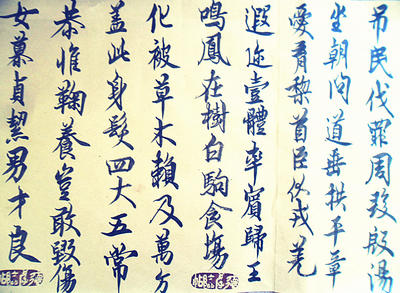 吊民伐罪周發殷湯
坐朝問道垂拱平章
愛育黎首臣伏戎羌
遐迩壹體率賓歸王
鳴鳳在樹白駒食場
化被草木賴及萬方
蓋此身髮四大五常
恭惟鞠養豈敢毀傷
女慕貞絜男才良